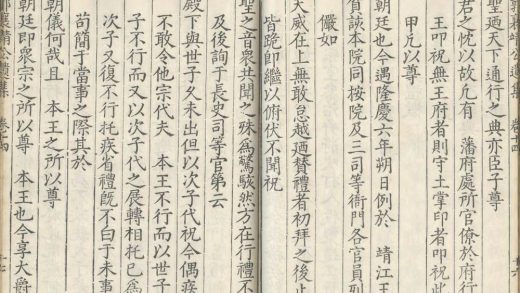 聖廼天下通行之典亦臣子尊
君之忱以故凡有 藩府處所官僚於府行
王叩祝無王府者則守土掌印者叩祝此
以尊
朝廷也今遇隆慶六年朔日例於 靖江王
賀該本院同按院及三司等衙門各官員
儼如
天威在上無敢怠越廼贊禮者初拜之後止
皆跪即繼以俯伏不聞祝
聖之音衆共聞之殊為驚駭然方在行禮不
及後詢于長史司等官第云
殿下與世子久未出但以次子代祝今偶疾
不敢令他宗代夫 本王不行而以世子
子不行而又以次子代之展轉相托已為
次子又復不行托疾省禮既不曰于未事
苟簡于當事之際其於
朝儀何哉且 本王之所以尊
朝廷即衆宗之所以尊 本王也今享大爵
郭襄靖公遺集 卷十四 十七